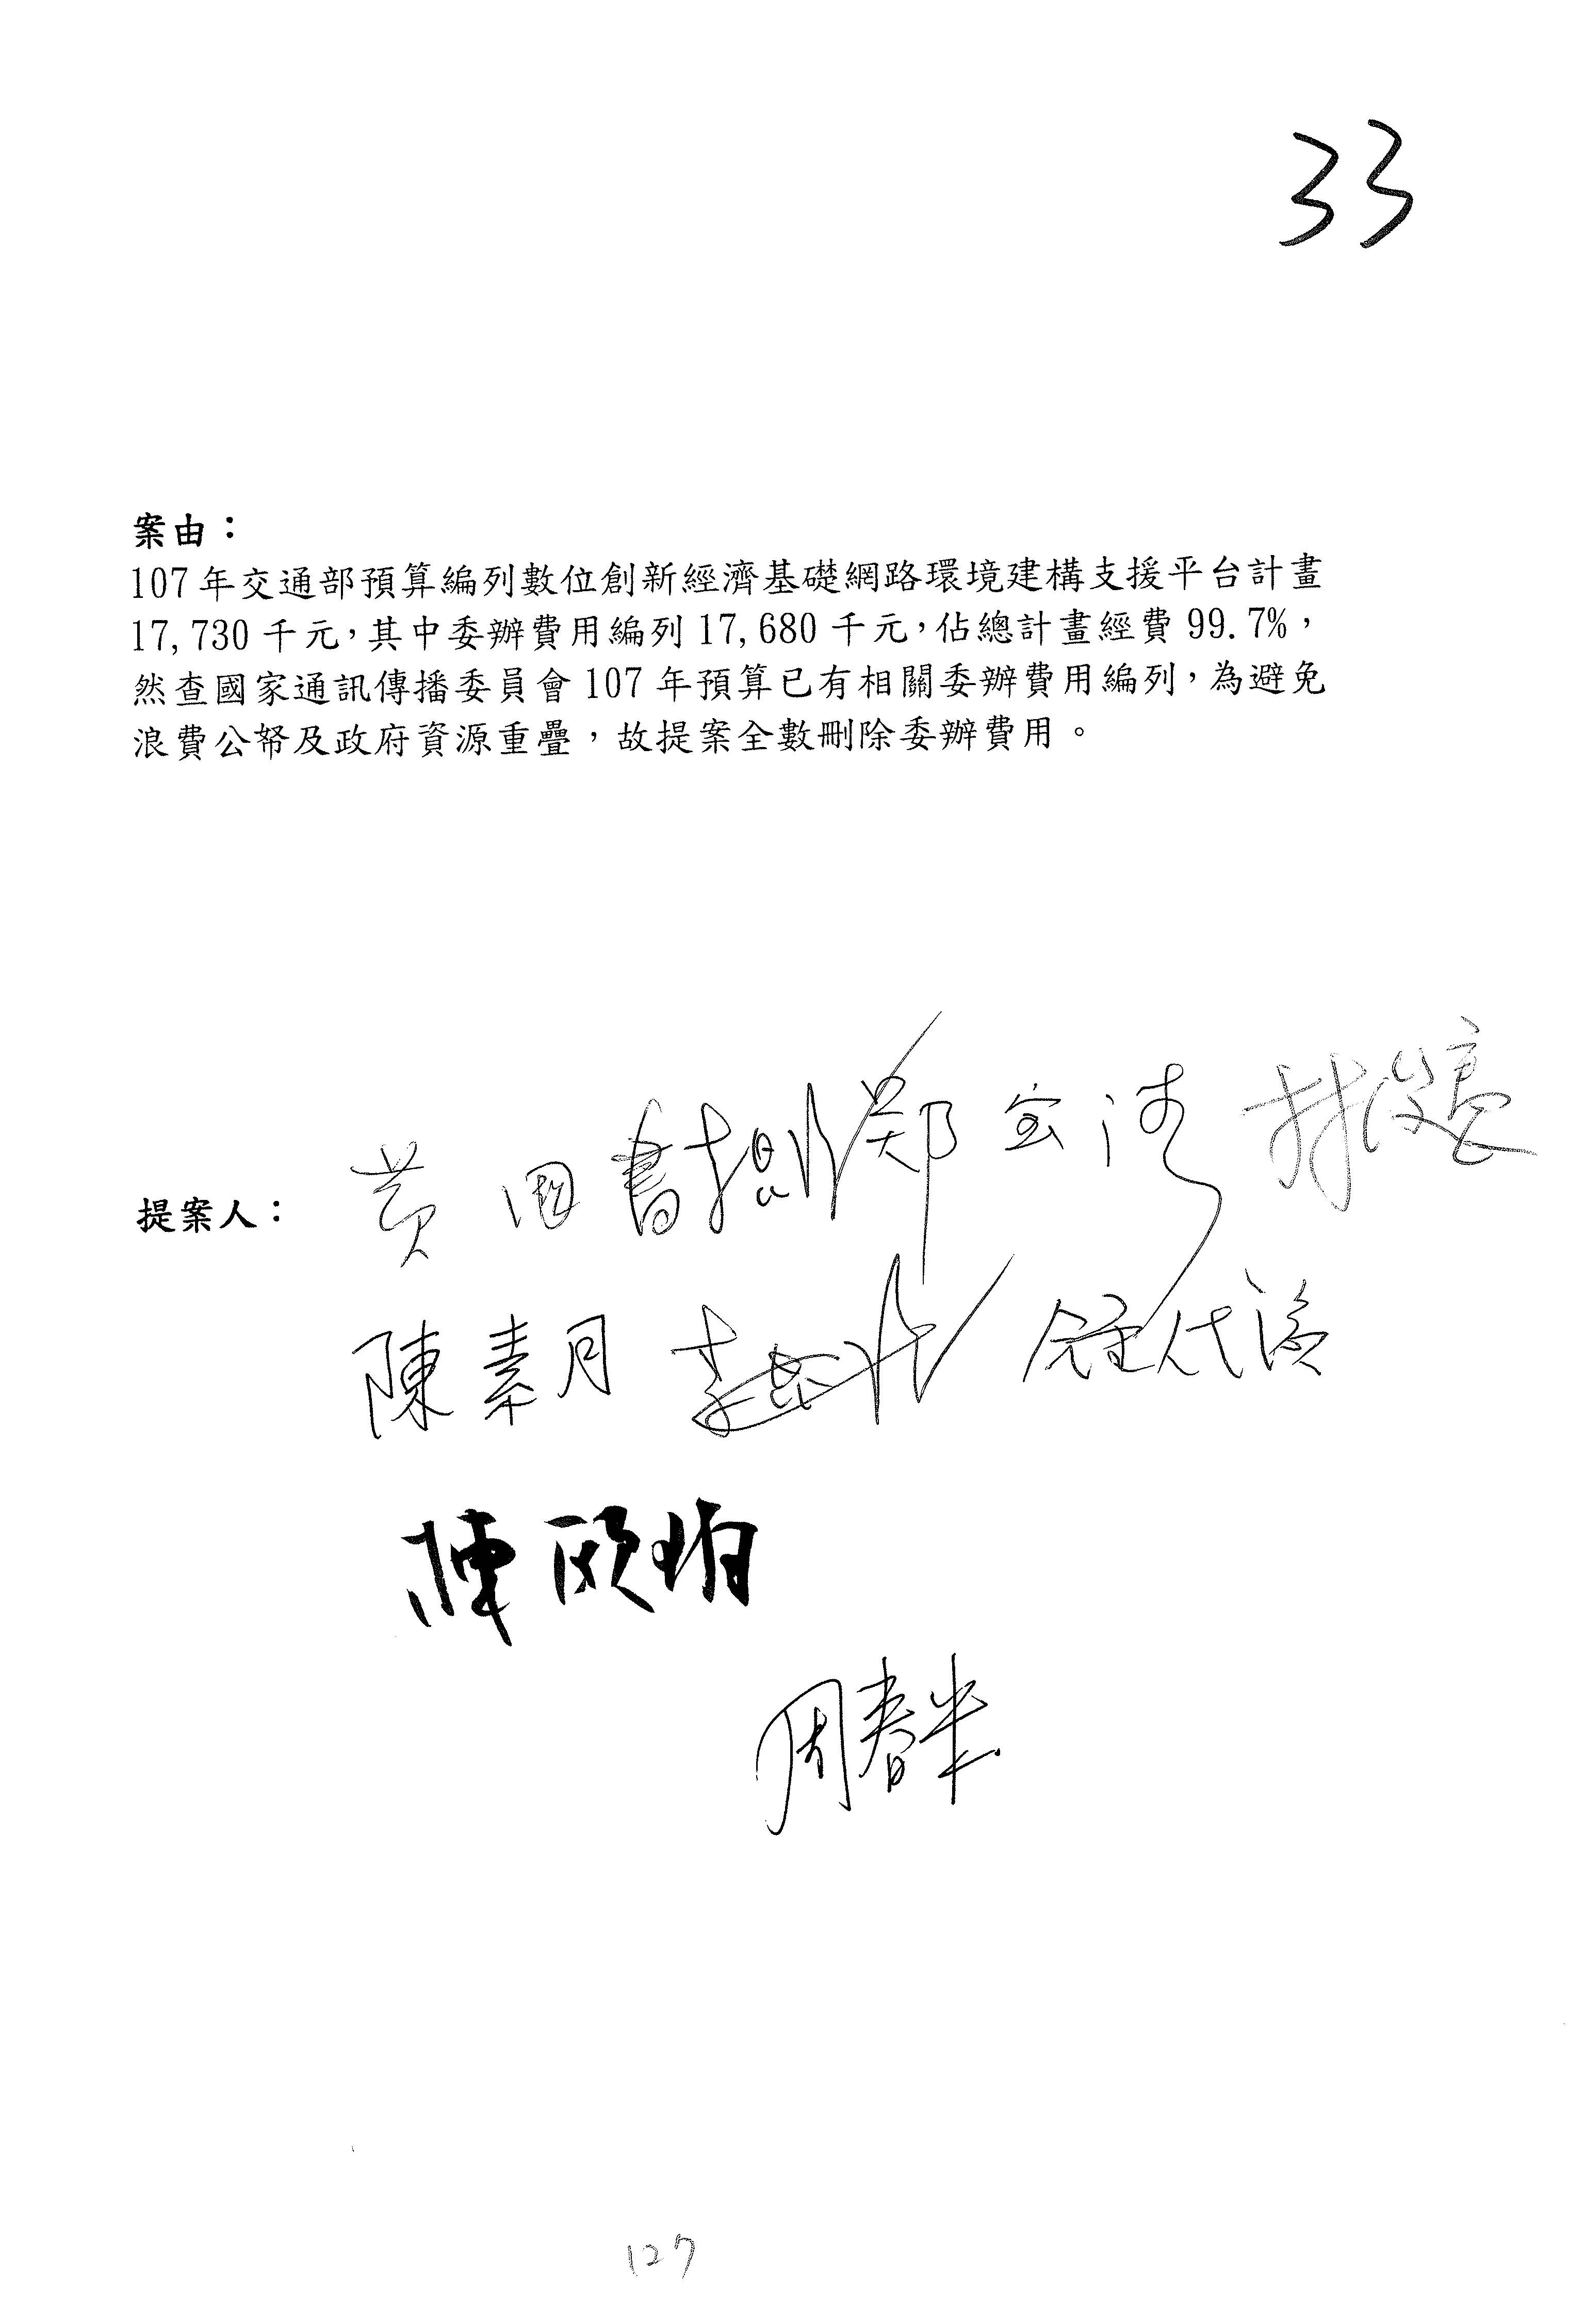 33
案由：
107年交通部預算編列數位創新經濟基礎網路環境建構支援平台計畫
17,730千元，其中委辦費用編列17,680千元，佔總計畫經費99.7%，
然查國家通訊傳播委員會107年預算已有相關委辦費用編列，為避免
浪費公帑及政府資源重疊，故提案全數刪除委辦費用。
提案人： 黃国書 鄭宝清 林俊憲
陳素月
陳歐珀
周春米
127